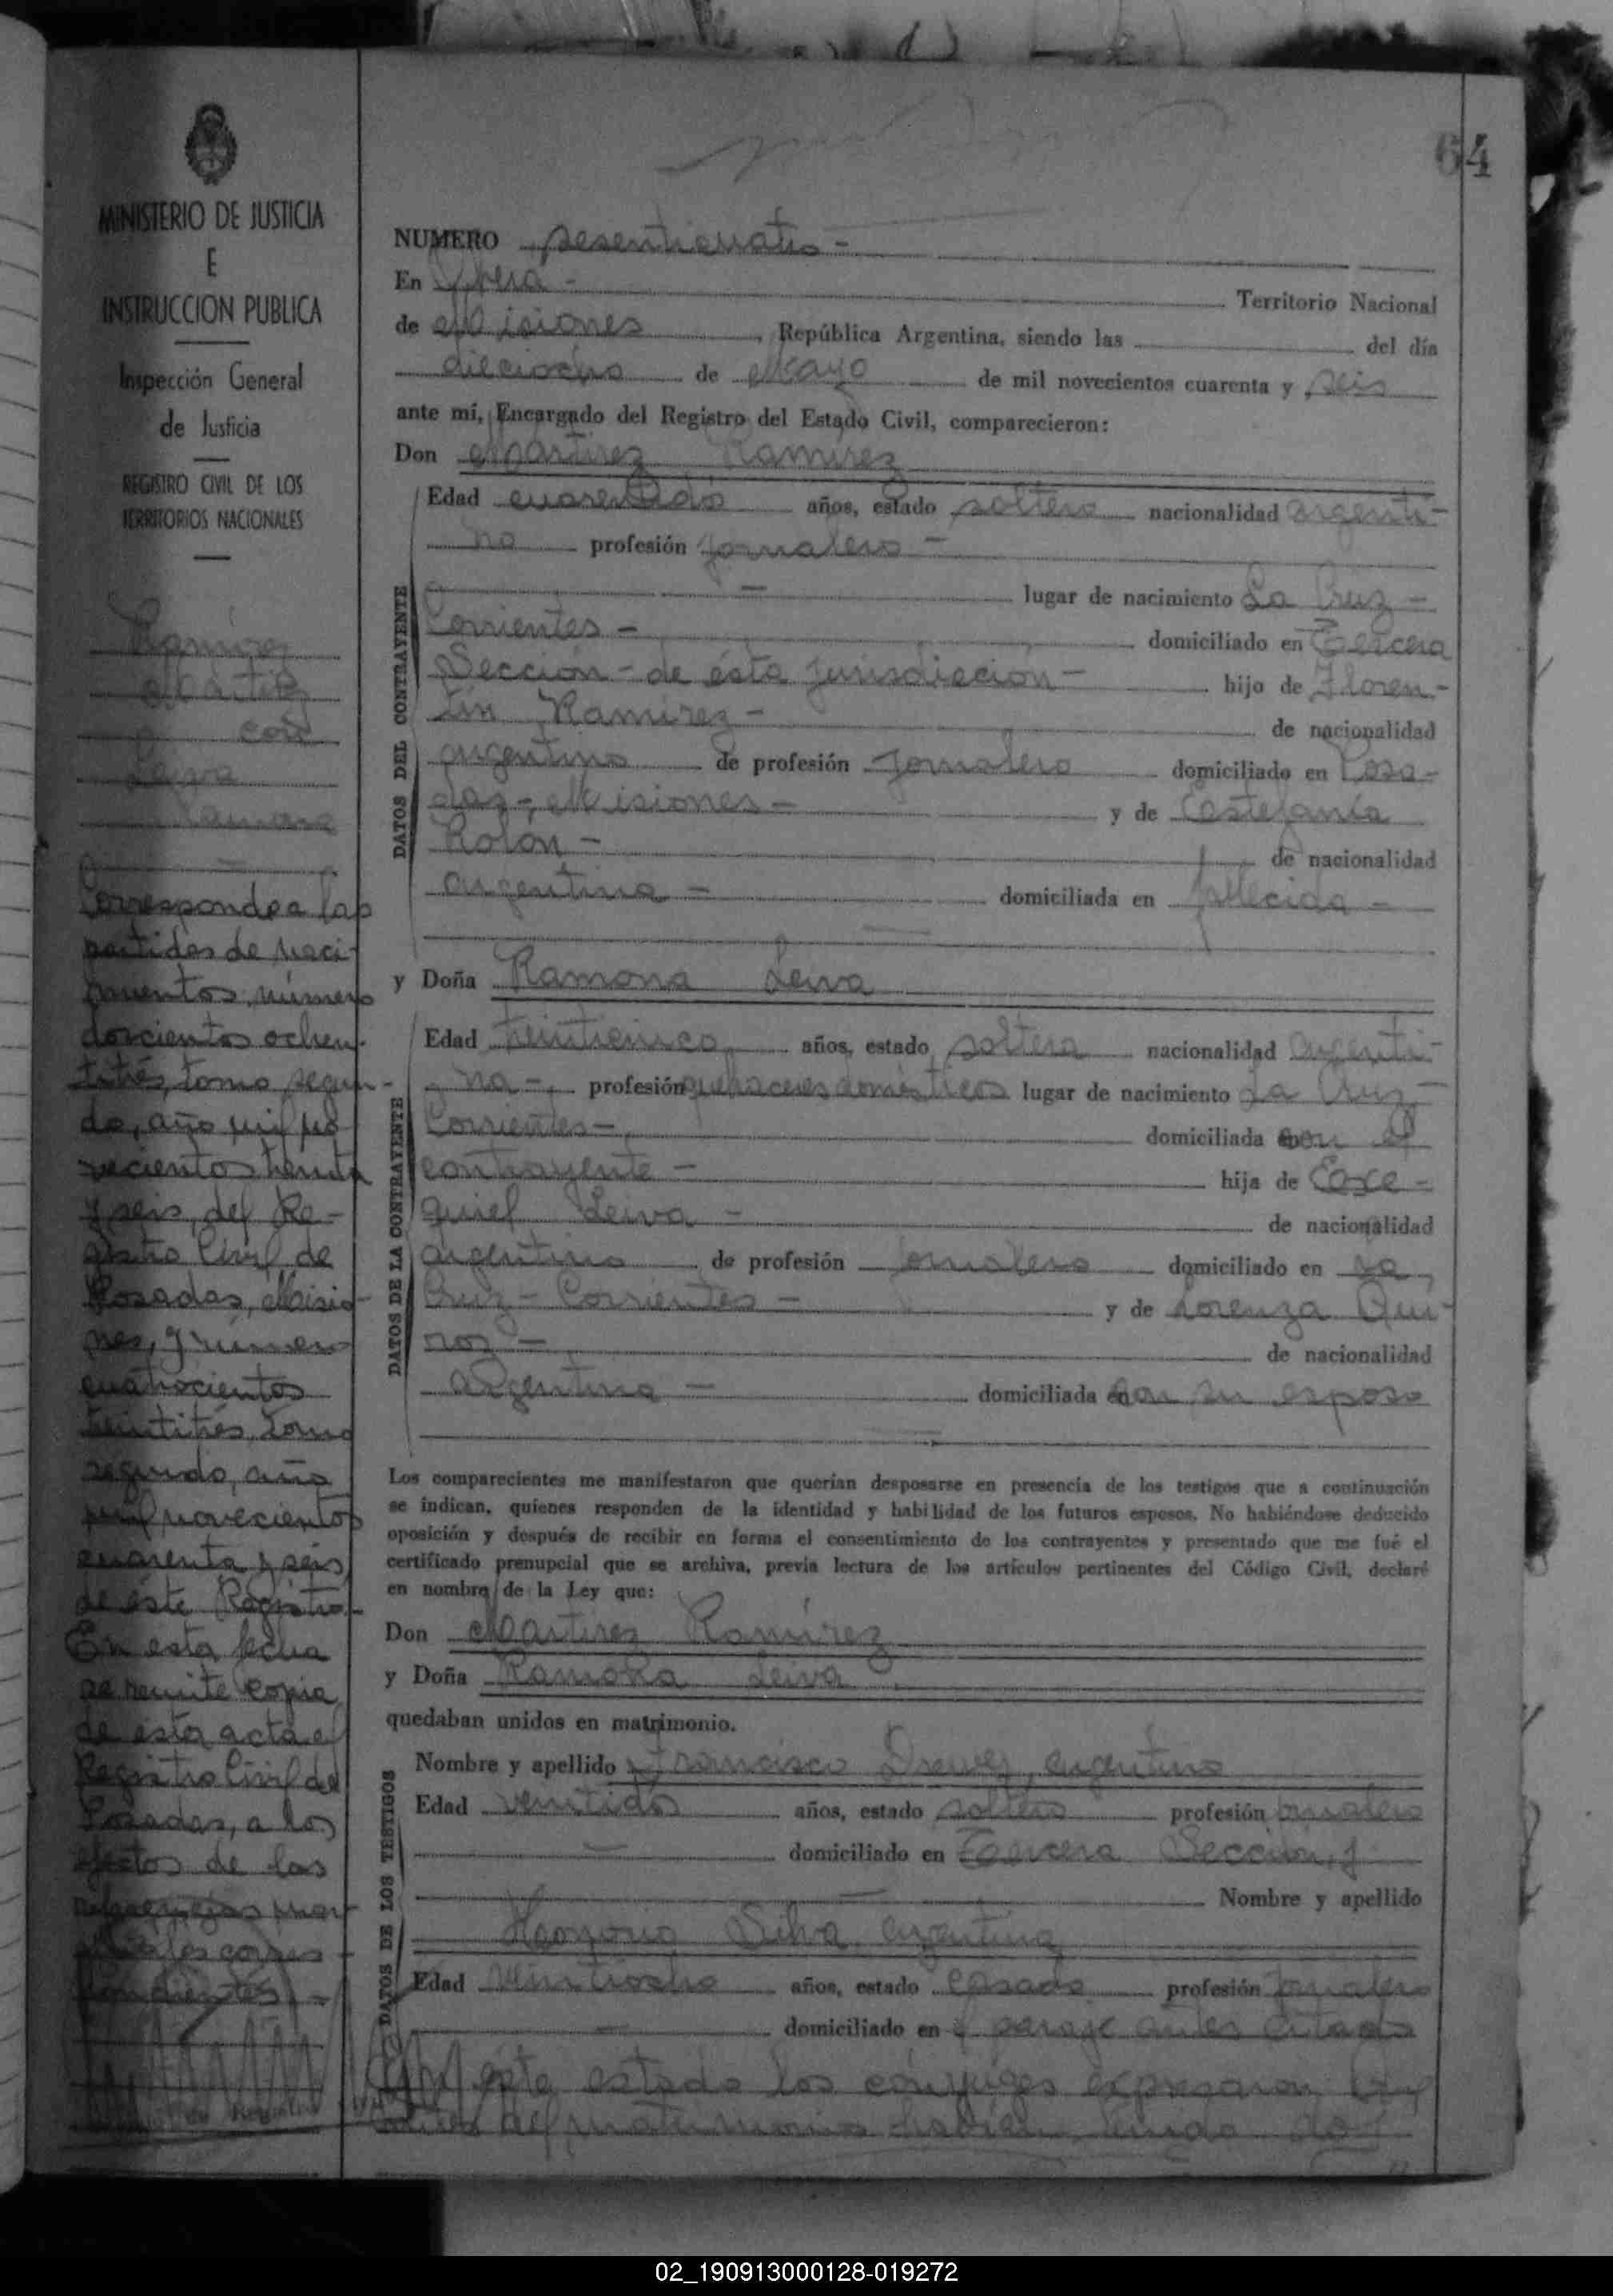 64
MINISTERIO DE JUSTICIA
E
INSTRUCCION PUBLICA
Inspección General
de Justicia
REGISTRO CIVIL DE LOS
TERRITORIOS NACIONALES
Ramirez
Martirez
con
Leiva
Ramona
Corresponde a las
partidas de naci-
mientos, número
doscientos ochen-
titrés, tomo segun-
do, año mil no-
vecientos treinta
y seis, del Re-
gistro Civil de
Posadas, Misio-
nes, y número
cuatrocientos
treintitrés, tomo
segundo, año
mil novecientos
cuarenta y seis
de éste Registro.-
En esta fecha
se remite copia
de ésta acta al
Registro Civil de
Posadas, a los
efectos de las
NUMERO sesenticuatro -
En
Territorio Nacional
de Misiones, República Argentina, siendo las del día
dieciocho de Mayo de mil novecientos cuarenta y seis
ante mí, Encargado del Registro del Estado Civil, comparecieron:
Don Martirez Ramirez
DATOS DEL CONTRAYENTE
Edad cuarentidos años, estado soltero nacionalidad argenti-
no profesión jornalero -
- lugar de nacimiento La Cruz -
Corrientes - domiciliado en Tercera
Sección - de ésta jurisdiccion - hijo de Floren-
tin Ramirez - de nacionalidad
argentino de profesión jornalero domiciliado en Posa-
das -, Misiones - y de Estefanía
Rolon - de nacionalidad
argentina - domiciliada en fallecida -
y Doña Ramona Leiva
DATOS DE LA CONTRAYENTE
Edad treinticinco años, estado soltera nacionalidad argenti-
na -, profesión quehaceres domésticos lugar de nacimiento La Cruz -
Corrientes - domiciliada con el
contrayente - hija de Exe-
quiel Leiva - de nacionalidad
argentino de profesión jornalero domiciliado en La
Cruz - Corrientes - y de Lorenza Qui-
roz - de nacionalidad
argentina - domiciliada con su esposo
Los comparecientes me manifestaron que querían desposarse en presencia de los testigos que a continuación
se indican, quienes responden de la identidad y habilidad de los futuros esposos. No habiéndose deducido
oposición y después de recibir en forma el consentimiento de los contrayentes y presentado que me fué el
certificado prenupcial que se archiva, previa lectura de los artículos pertinentes del Código Civil, declaré
en nombre de la Ley que:
Don Martirez Ramírez
y Doña Ramona Leiva
quedaban unidos en matrimonio.
DATOS DE LOS TESTIGOS
Nombre y apellido Francisco argentino
Edad ventidos años, estado soltero profesión jornalero
- domiciliado en Tercera Sección, y
- Nombre y apellido
Silva, argentino
Edad veintiocho años, estado casado profesión jornalero
- domiciliado en el paraje antes citado
éste estado los cónyuges expresaron
antes del matrimonio habían tenido
02_190913000128-019272